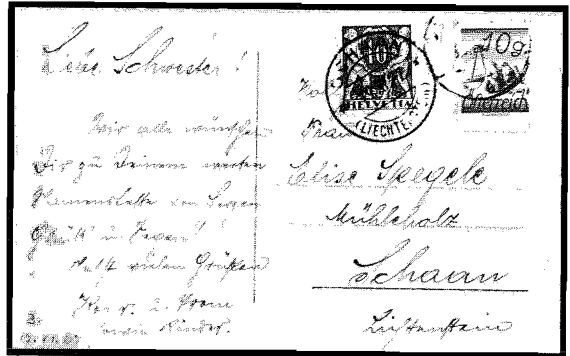 Liebe Schwester!
Wir alle wünschen
Dir zu Deinem werten
Namensfeste von Herzen
Glück u. Segen!
Nebst vielen Grüßen
u.
sowie Kinder.
10
HELVETIA
SCHAAN
(LIECHTE
10 g
Österreich
Frau
Elise Spegele
Mühleholz
Schaan
Lichtenstein